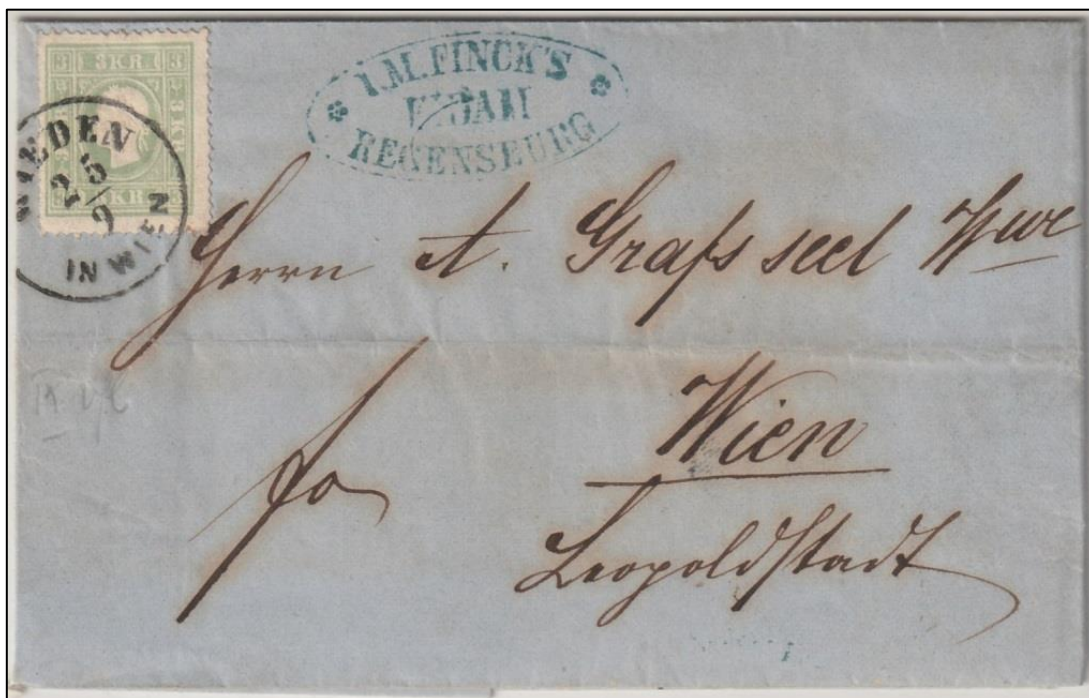 3 3KR 3
3KR
3 3KR 3
WIEDEN
25
9
IN WIEN
I.M.FINCK'S
EIDAM
REGENSBURG
Herrn A. Grafs seel Wwe
fo
Wien
Leopoldstadt